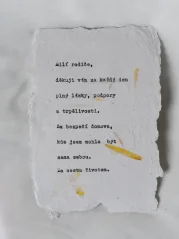 Milí rodiče,
děkuji vám za každý den
plný lásky, podpory
a trpělivosti.
Za bezpečí domova,
kde jsem mohla být
sama sebou.
Za cestu životem.